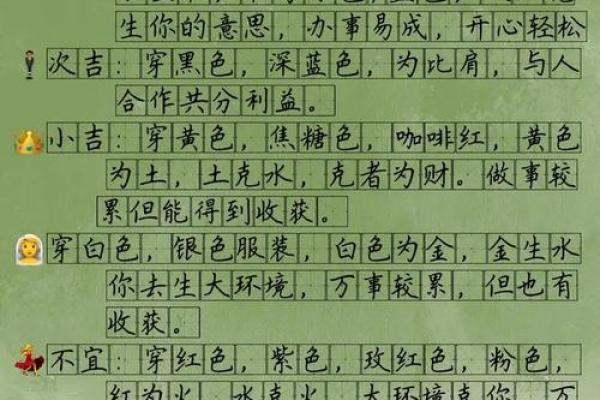 生你的意思，办事易成，开心轻松
次吉：穿黑色，深蓝色，为比肩，与人
合作共分利益。
小吉：穿黄色，焦糖色，咖啡红，黄色
为土，土克水，克者为财。做事较
累但能得到收获。
穿白色，银色服装，白色为金，金生水
你去生大环境，万事较累，但也有
收获。
不宜：穿红色，紫色，玫红色，粉色，
红为火，水克火，大环境克你，万